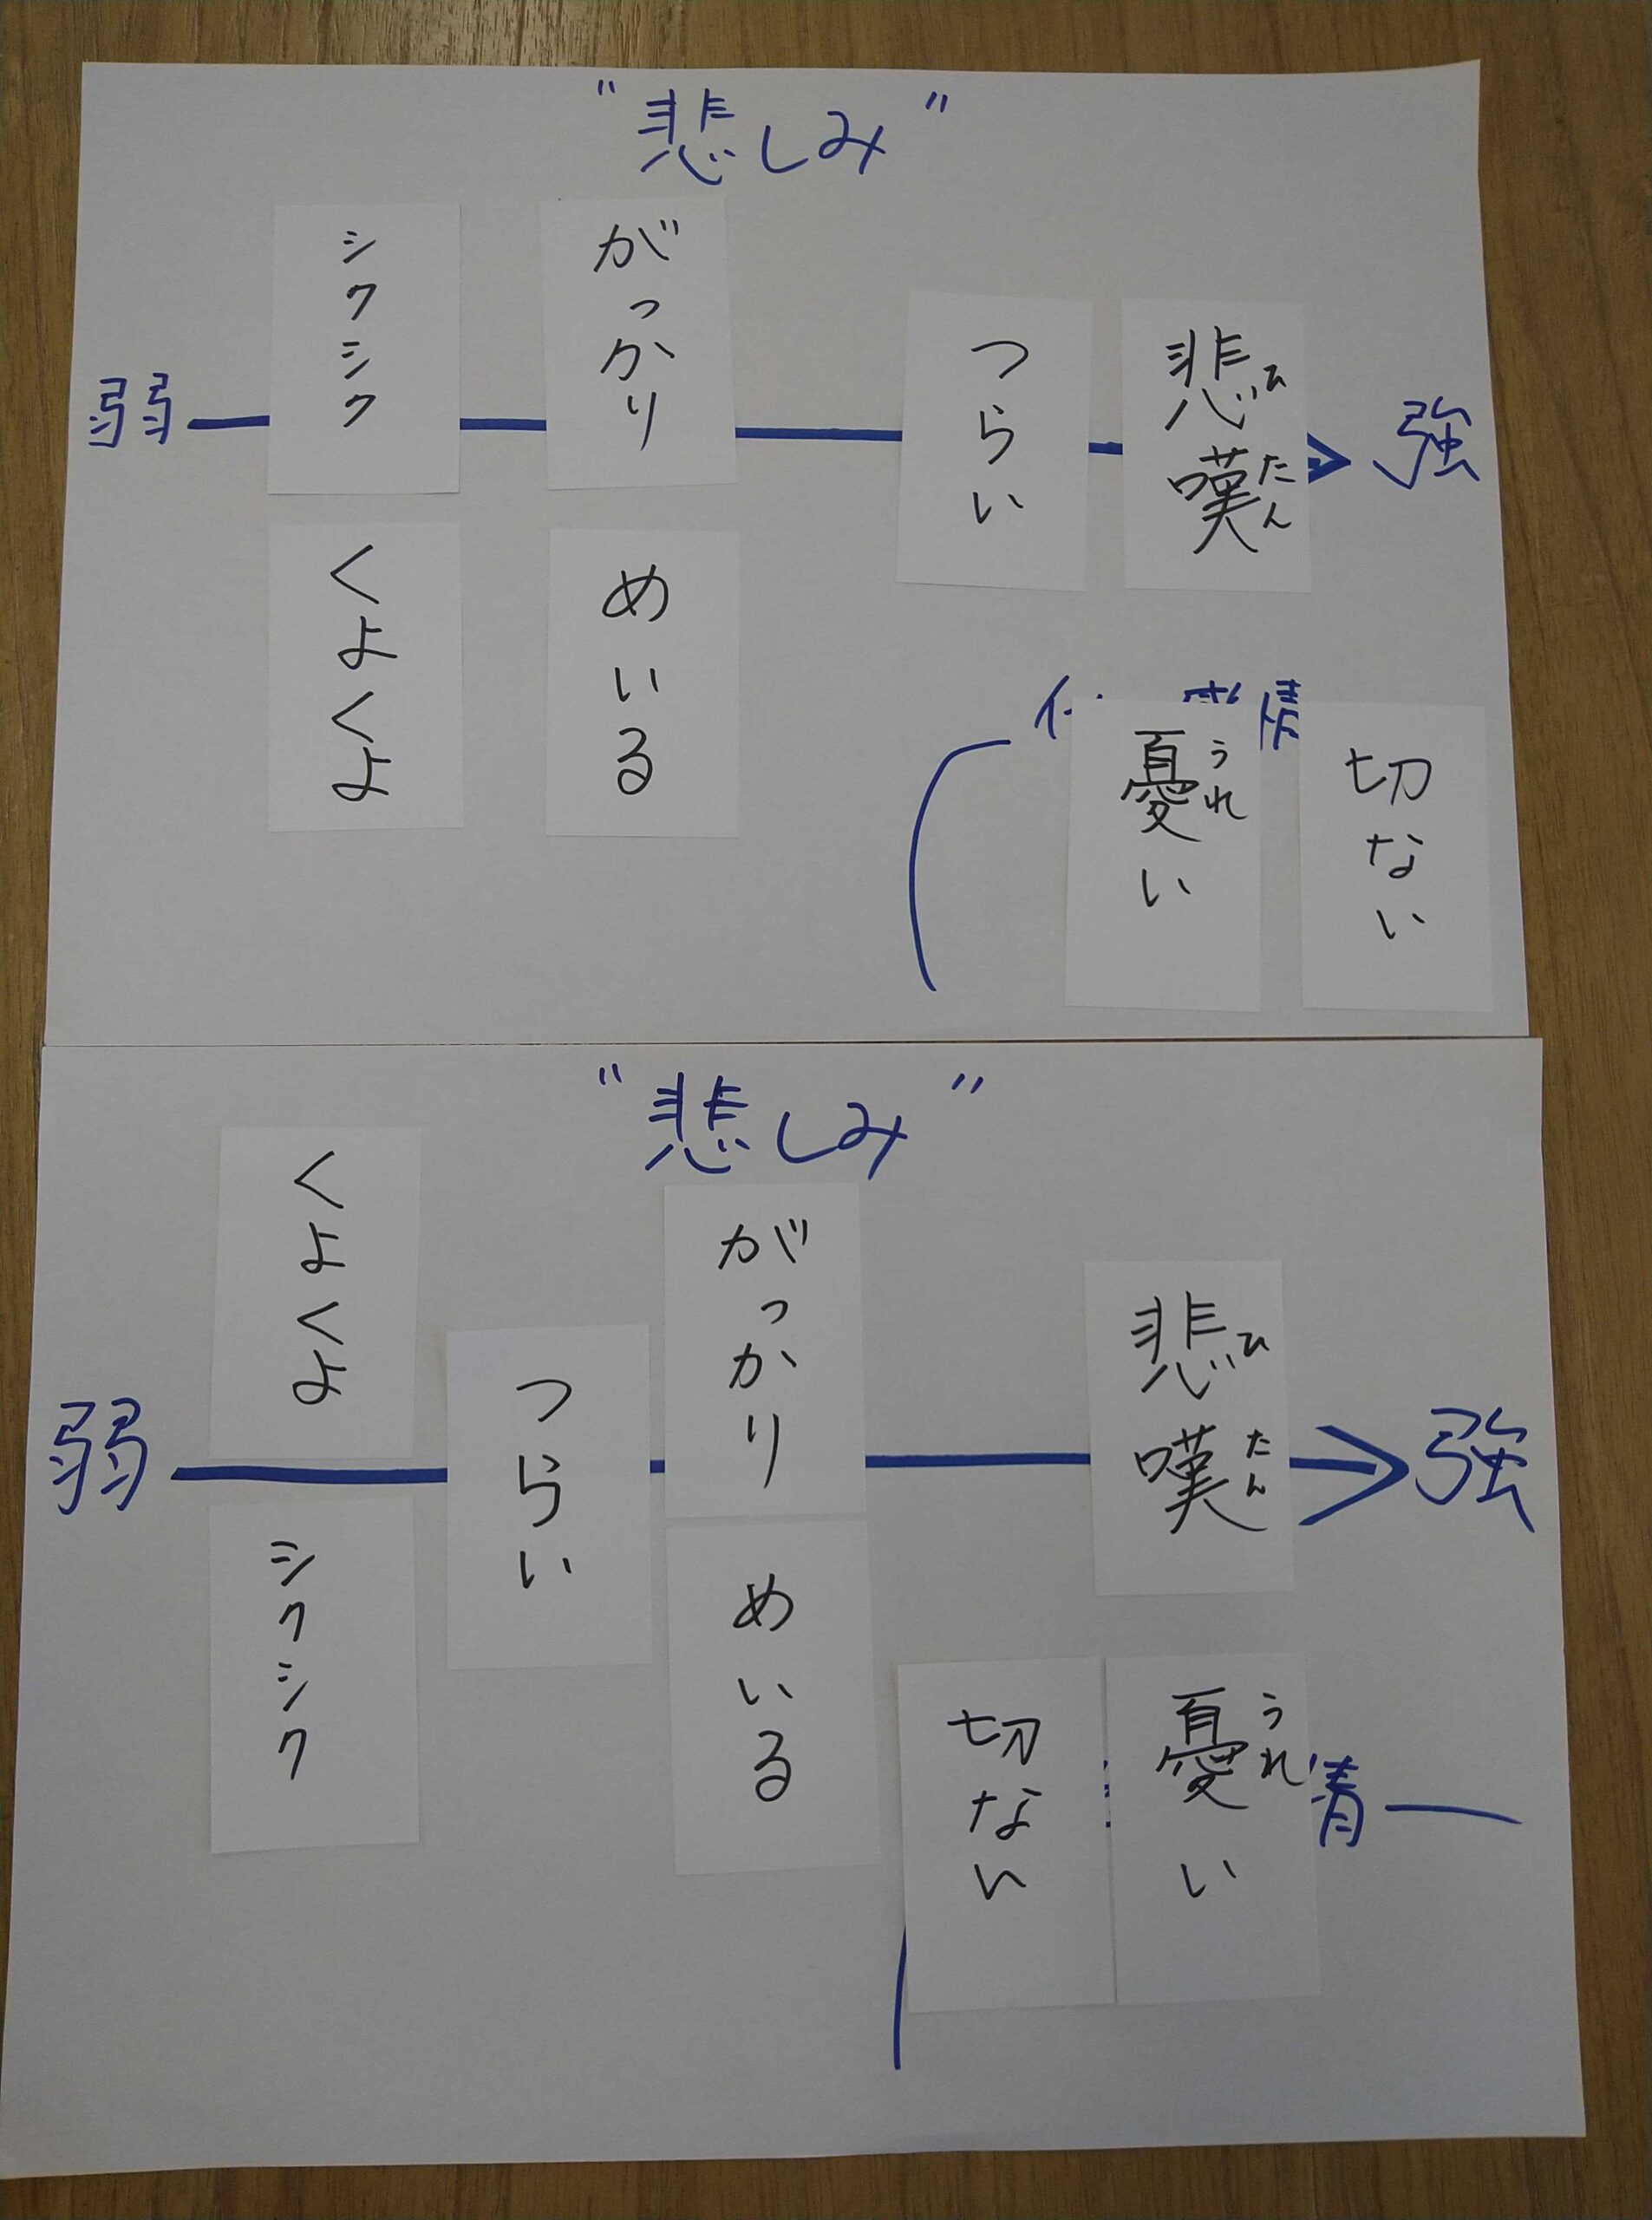 "悲しみ"
弱
シクシク
がっかり
つらい
悲嘆
ひたん
強
くよくよ
めいる
情
憂い
うれ
切ない
"悲しみ"
弱
くよくよ
シクシク
つらい
がっかり
めいる
悲嘆
ひたん
強
切ない
憂い
うれ
情